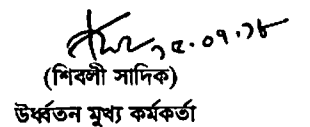 ১৫.০৭.১৮
(শিবলী সাদিক)
উর্ধ্বতন মুখ্য কর্মকর্তা